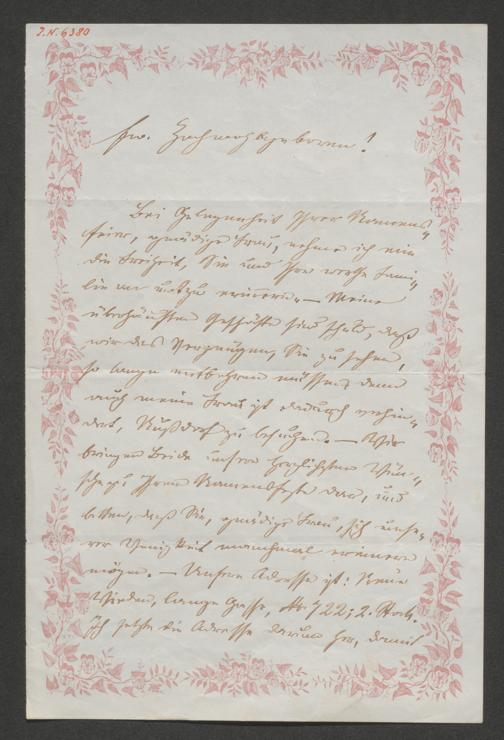 J.N. 6380
Ew. Hochwohlgeboren!
Bei Gelegenheit Ihrer Namens-
feier, gnädige Frau, nehme ich mir
die Freiheit, Sie und Ihre werthe Fami-
lie an uns zu erinnern. — Meine
überhäuften Geschäfte sind schuld, daß
wir das Vergnügen, Sie zu sehen,
so lange entbehren müssen, denn
auch meine Frau ist dadurch verhin-
dert, Nußdorf zu besuchen. — Wir
bringen Beide unsere herzlichsten Wün-
sche zu Ihrem Namensfeste dar, und
bitten, daß Sie, gnädige Frau, sich unse-
rer Wenigkeit manchmal erinnern
mögen. — Unsere Adresse ist: Neue
Wieden, lange Gasse, No. 722; 2. Stock.
Ich setzte die Adresse darum her, damit